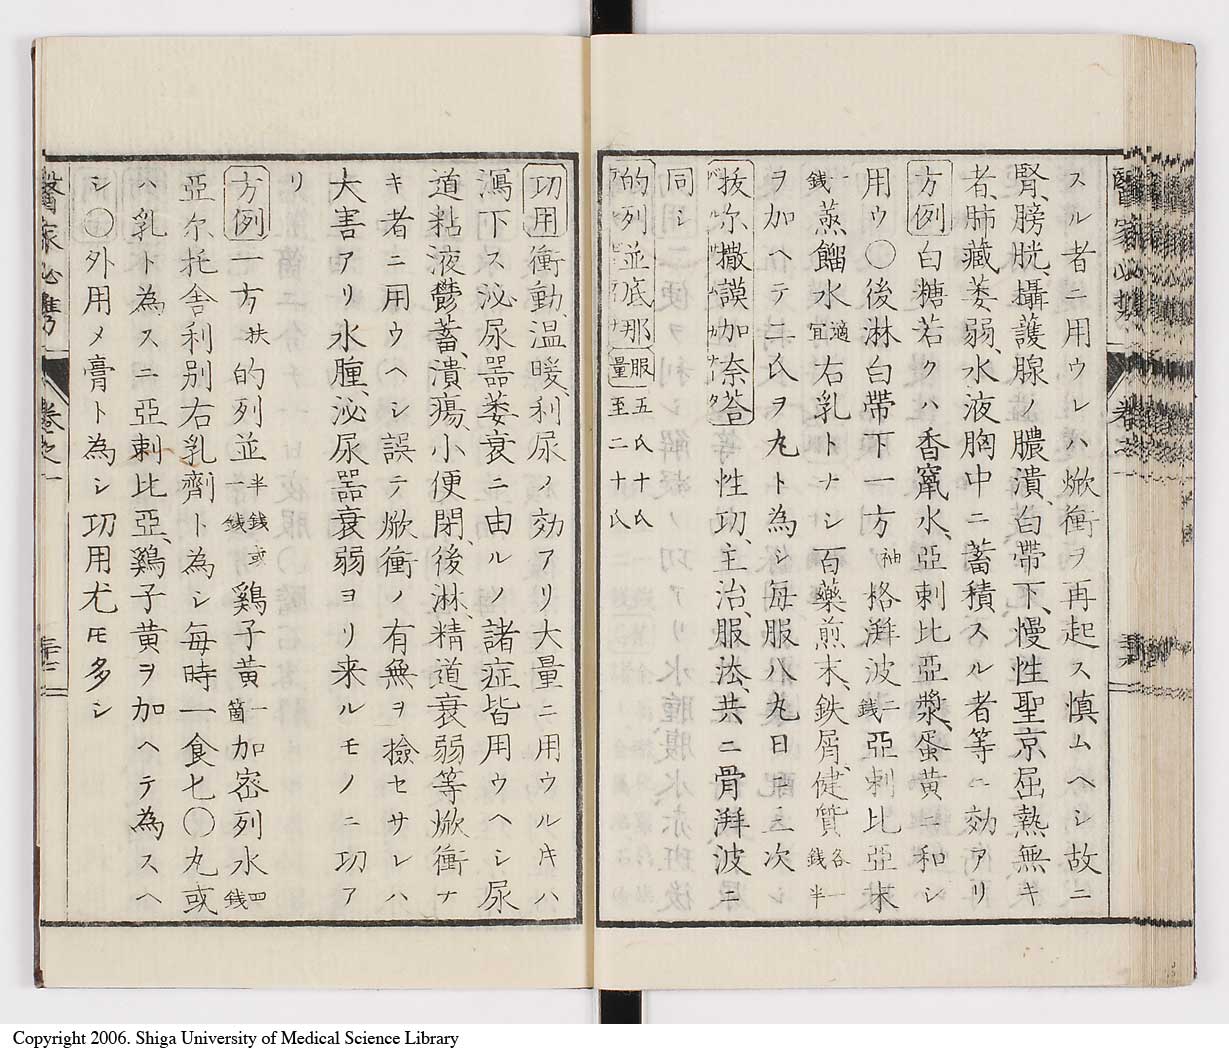 スル者ニ用ウレハ焮衝ヲ再起ス慎ムヘシ故ニ
腎、膀胱、攝護腺ノ膿潰、白帯下、慢性聖京屈熱無キ
者肺藏萎弱、水液胸中ニ蓄積スル者等ニ効アリ
方例 白糖若クハ香竄水、亞刺比亞漿蛋黄ニ和シ
用ウ〇後淋白帯下一方 格湃波二錢亞刺比亞末
一錢蒸餾水適宜右乳トナシ百藥煎末、鉄屑、健質各一錢半
ヲ加ヘテ二氏ヲ丸ト為シ毎服八丸日ニ三次
拔尓撒謨加奈荅 性功、主治、服法、共ニ骨湃波ニ
同シ
的列並底那 服量五氏十氏至二十氏
功用 衝動、温暖、利尿ノ効アリ大量ニ用ウル𪜈ハ
瀉下ス泌尿器萎衰ニ由ルノ諸症皆用ウヘシ尿
道粘液鬱蓄、潰瘍、小便閉、後淋、精道衰弱等焮衝ナ
キ者ニ用ウヘシ誤テ焮衝ノ有無ヲ撿セサレハ
大害アリ水腫、泌尿器衰弱ヨリ来ルモノニ功ア
リ
方例 一方 扶 的列並半錢或一錢鷄子黄一箇加密列水四錢
亞尔托舎利別右乳劑ト為シ毎時一食匕〇丸或
ハ乳ト為スニ亞刺比亞、鷄子黄ヲ加ヘテ為スヘ
シ〇外用メ膏ト為シ功用尤モ多シ
醫家必携
卷之一
Copyright 2006. Shiga University of Medical Science Library